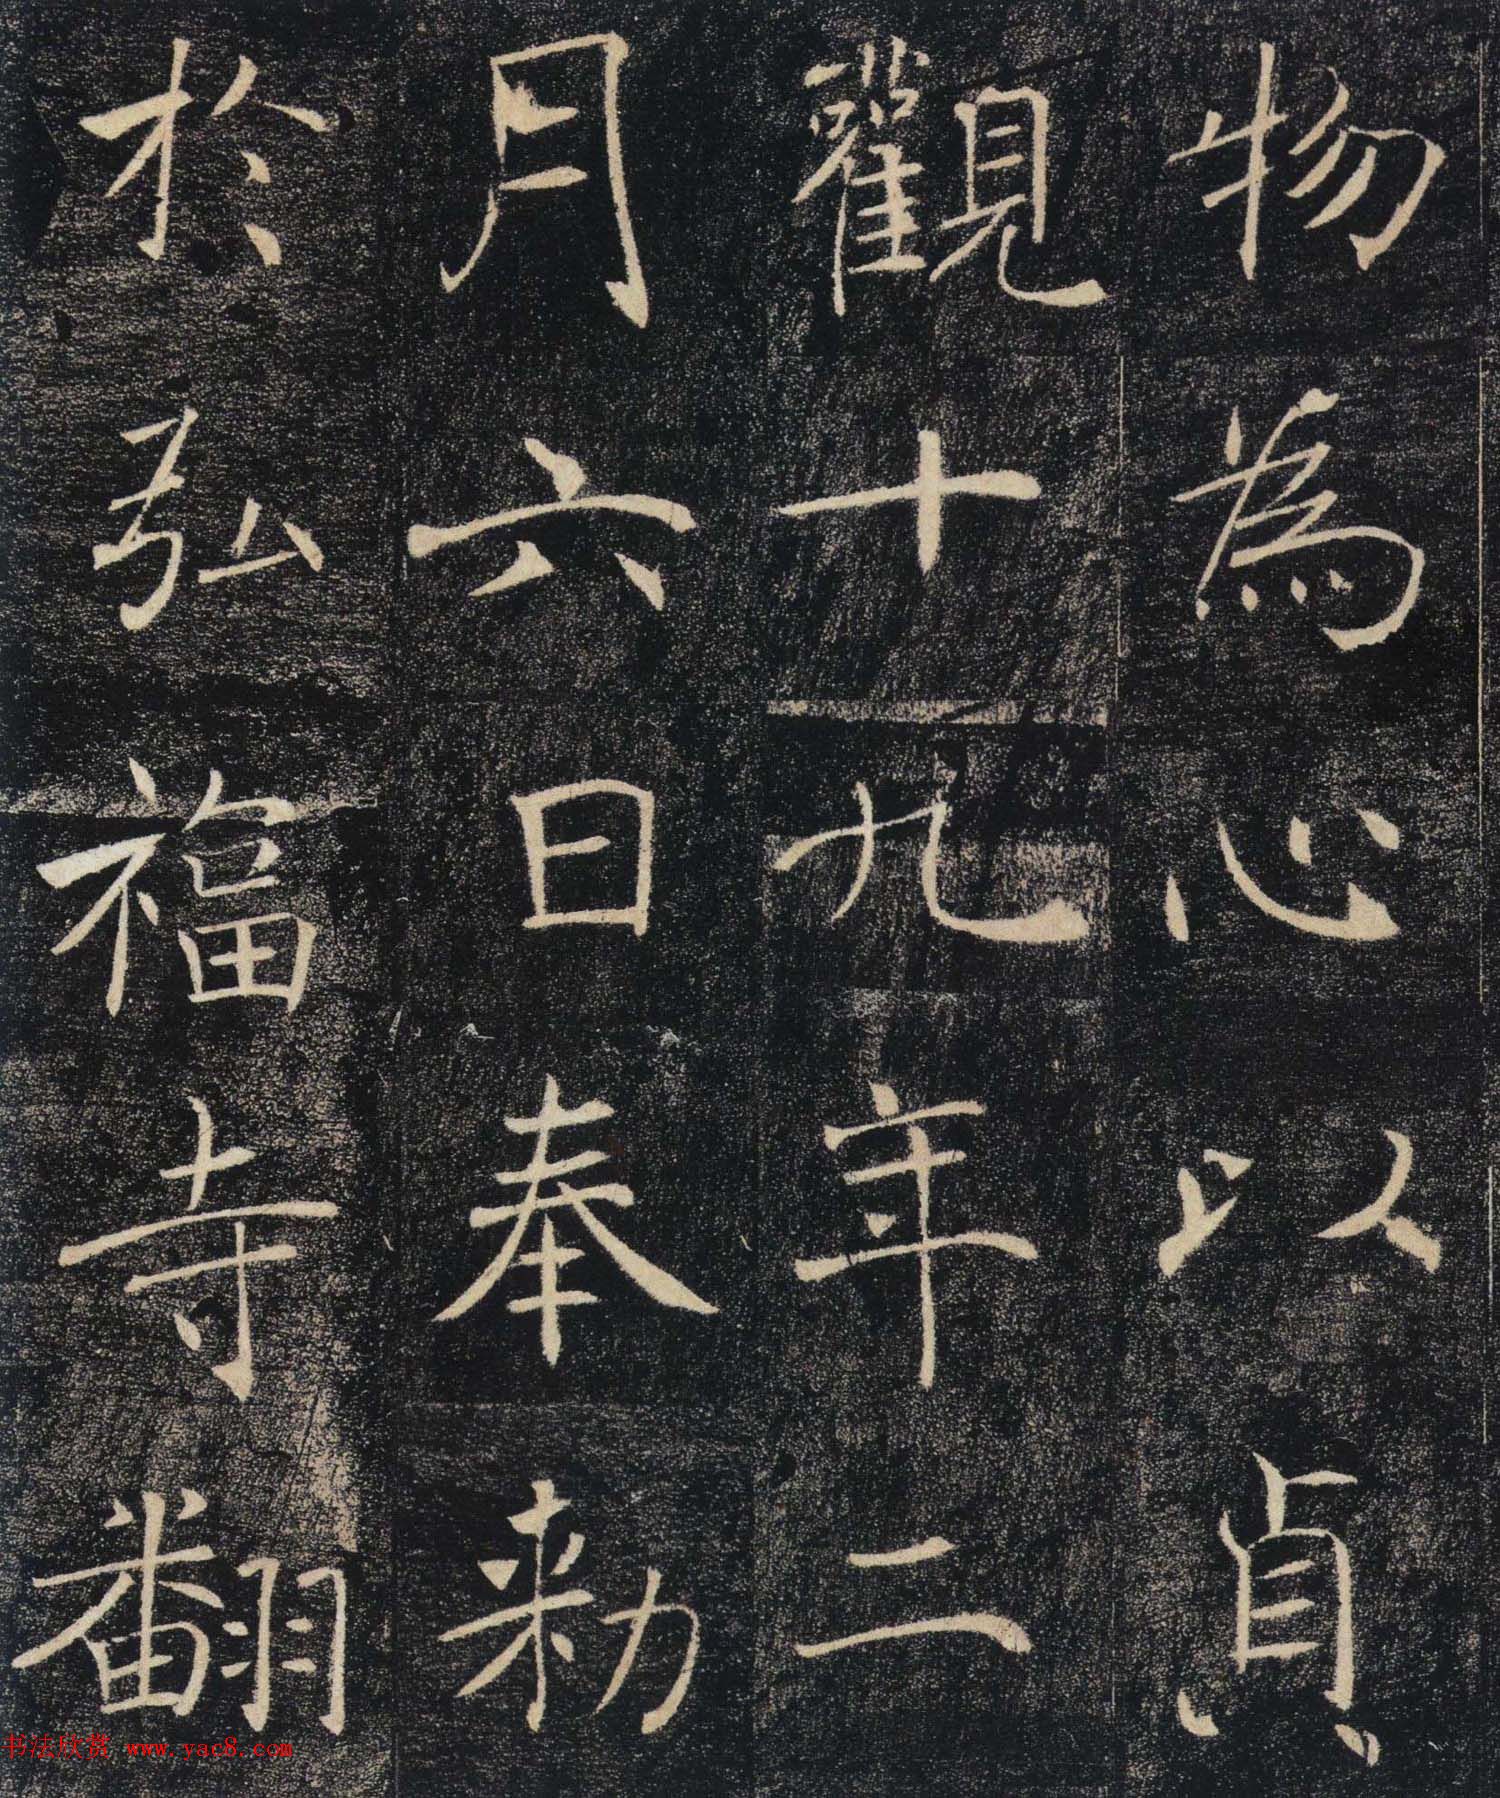 物為心以貞
觀十九年二
月六日奉勑
於弘福寺翻
书法欣赏 www.yac8.com